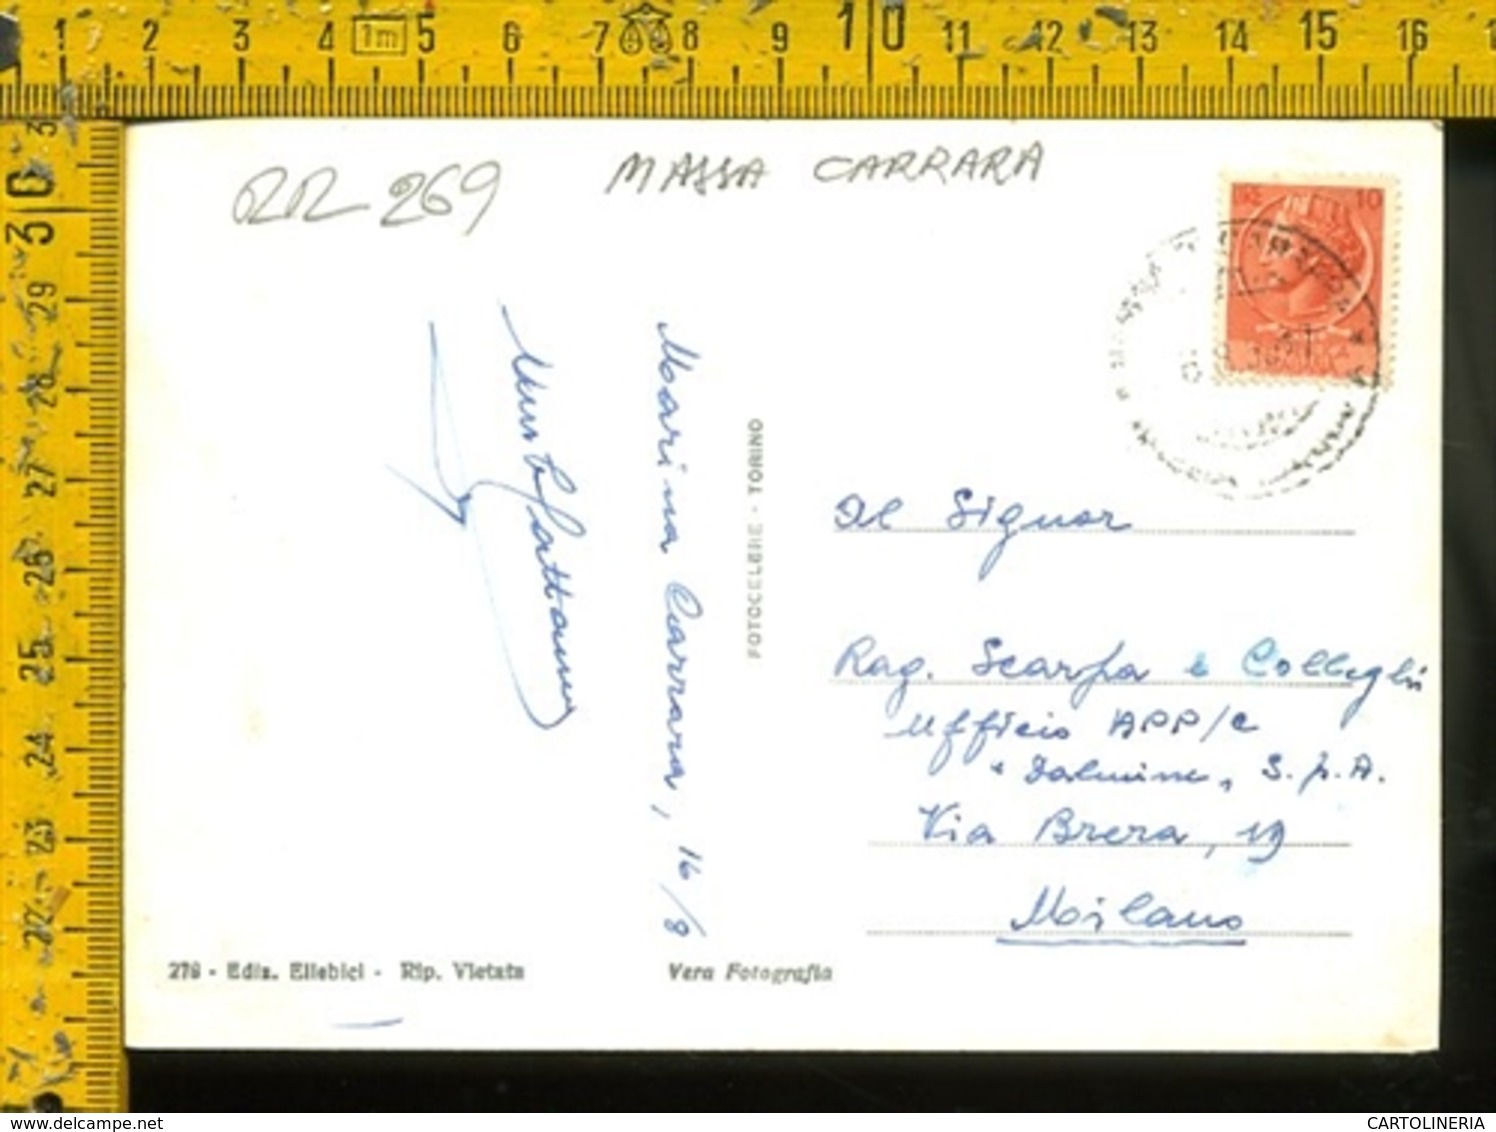 1 2 3 4 1m 5 6 7 8 9 10 11 12 13 14 15 16
3
30
29
28
27
26
25
24
23
22
RR 269
MASSA CARRARA
LIRE 10
Marina Carrara, 16/8
FOTOCELERE - TORINO
Al Signor
Rag. Scarpa e Colleghi
Ufficio APP/C
"Dalmine" S.p.A.
Via Brera, 19
Milano
278 - Ediz. Ellebici - Rip. Vietata
Vera Fotografia
CARTOLINERIA